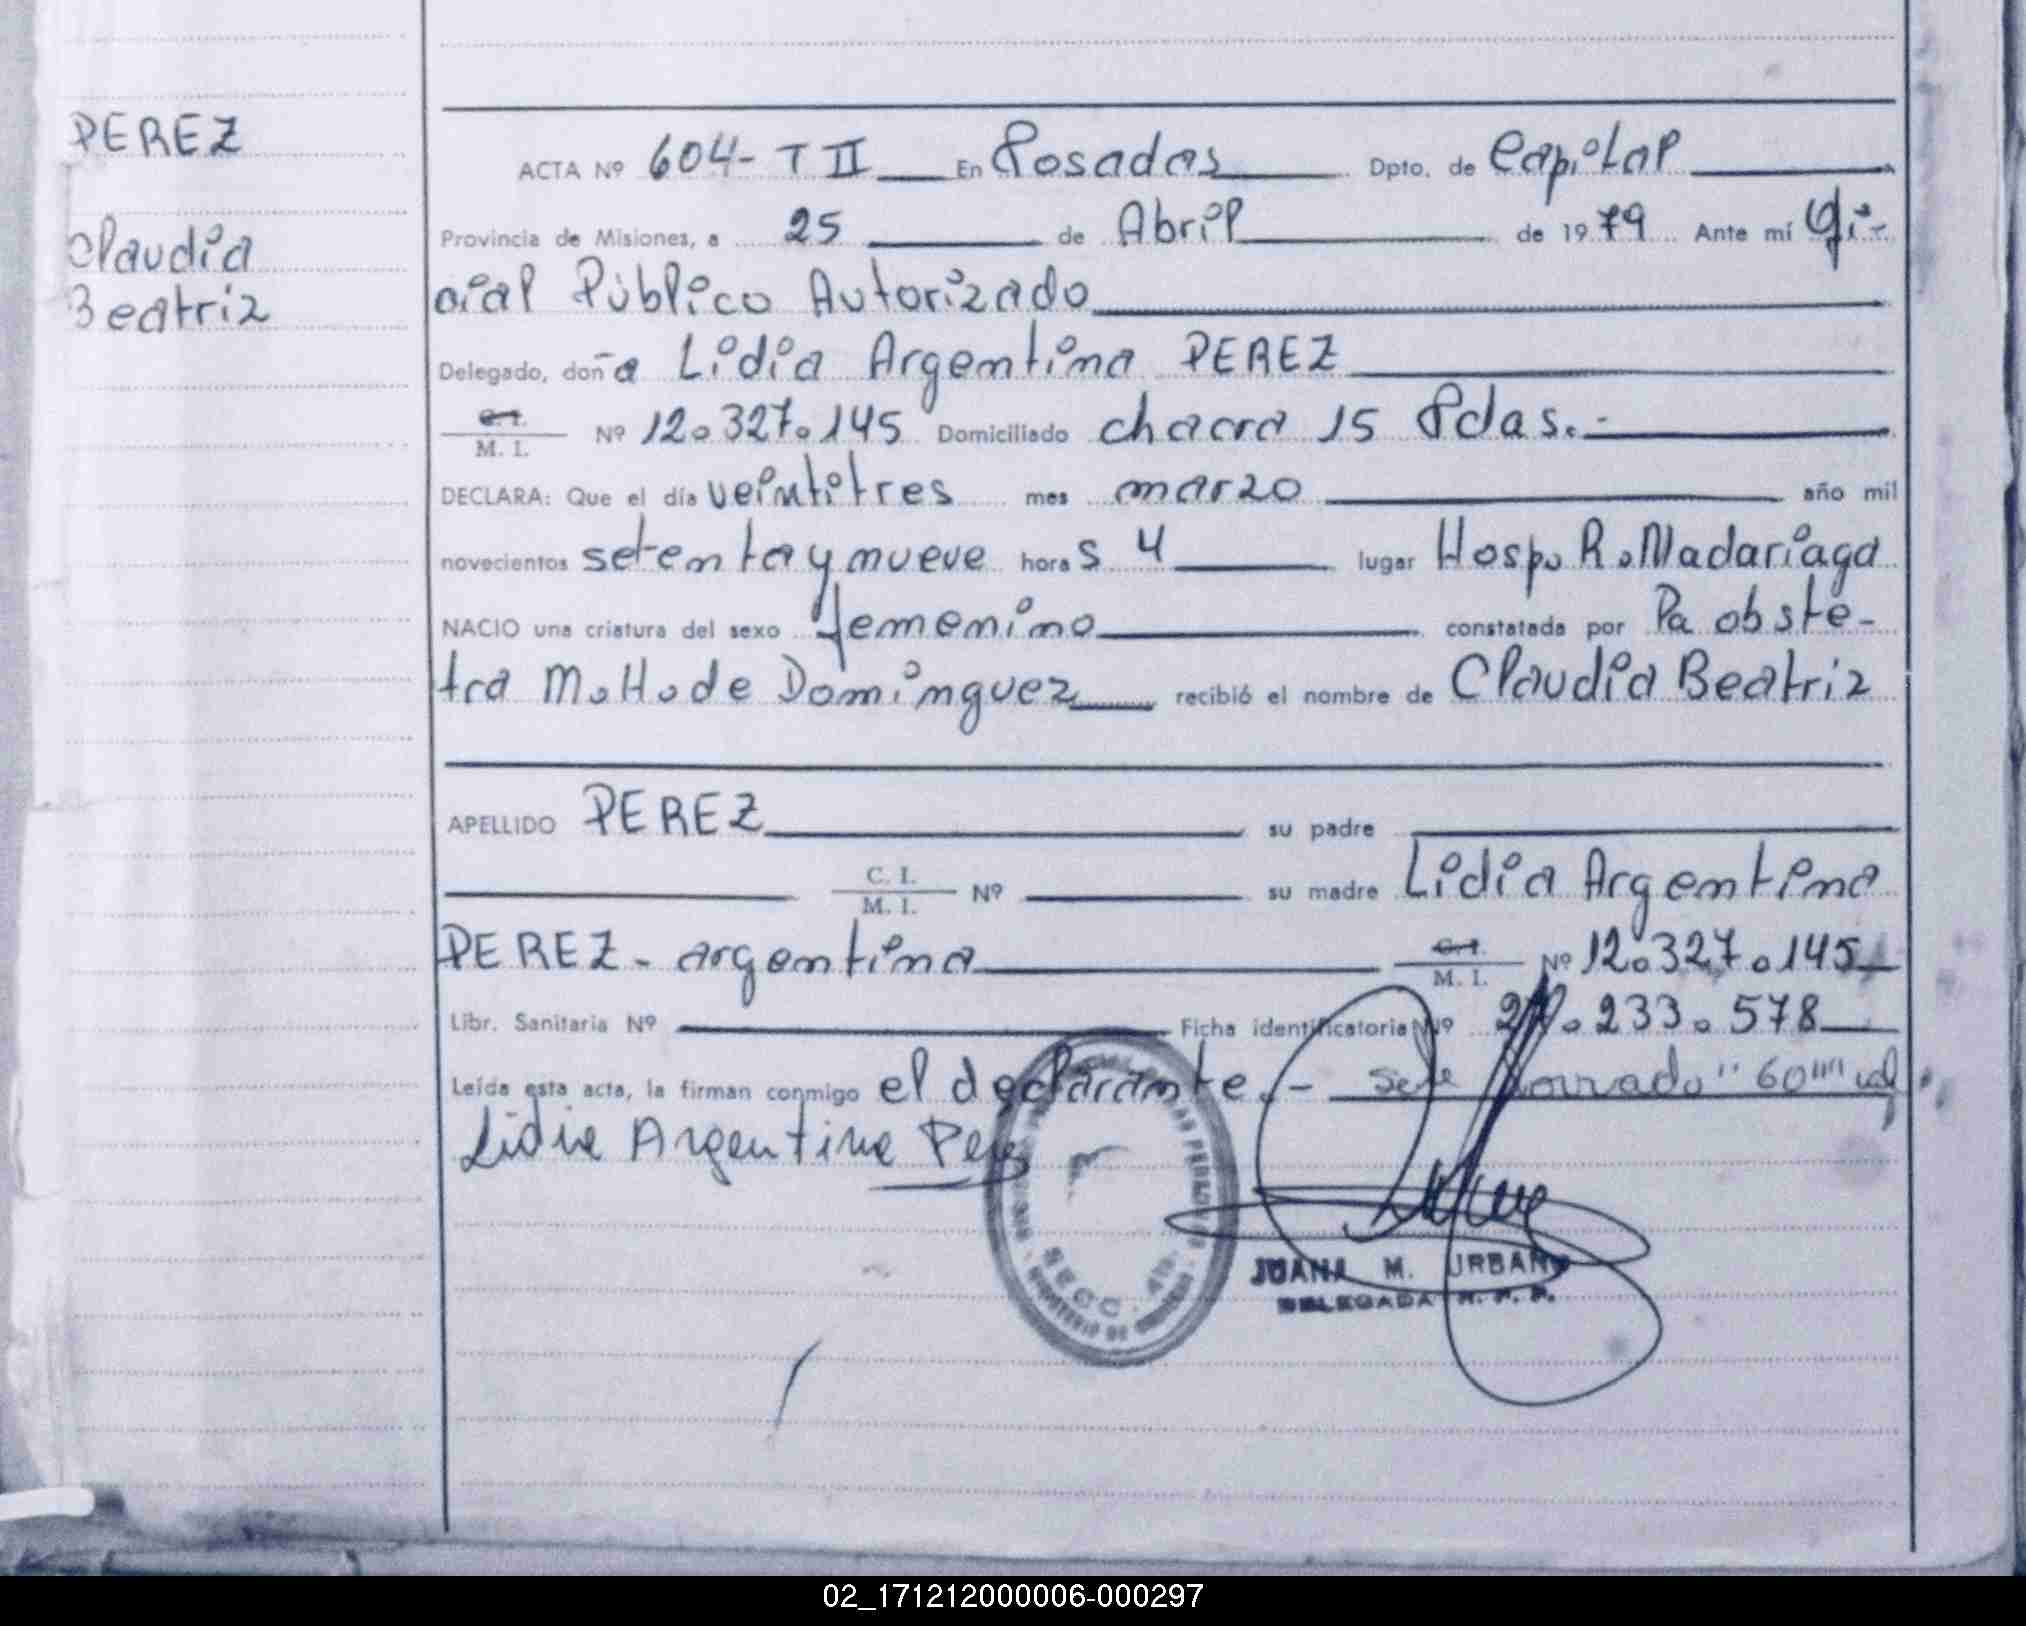 PEREZ
Claudia
Beatriz
ACTA Nº 604- T II En Posadas Dpto. de Capital
Provincia de Misiones, a 25 de Abril de 1979 Ante mí Ofi-
cial Público Autorizado
Delegado, doña Lidia Argentina PEREZ
C.I.
M. I. Nº 12.327.145 Domiciliado chacra 15 Pdas.-
DECLARA: Que el día veintitres mes marzo año mil
novecientos setenta y nueve horas 4 lugar Hosp. R. Madariaga
NACIO una criatura del sexo femenino constatada por la obste-
tra M.H. de Dominguez recibió el nombre de Claudia Beatriz
APELLIDO PEREZ su padre
C. I.
M. I. Nº su madre Lidia Argentina
PEREZ - argentina C.I.
M. I. Nº 12.327.145
Libr. Sanitaria Nº Ficha identificatoria Nº 27.233.578
Leída esta acta, la firman conmigo el declarante.-
Lidia Argentina Perez
SECC.
JUANA M. URBANO
DELEGADA R. P. P.
02_171212000006-000297